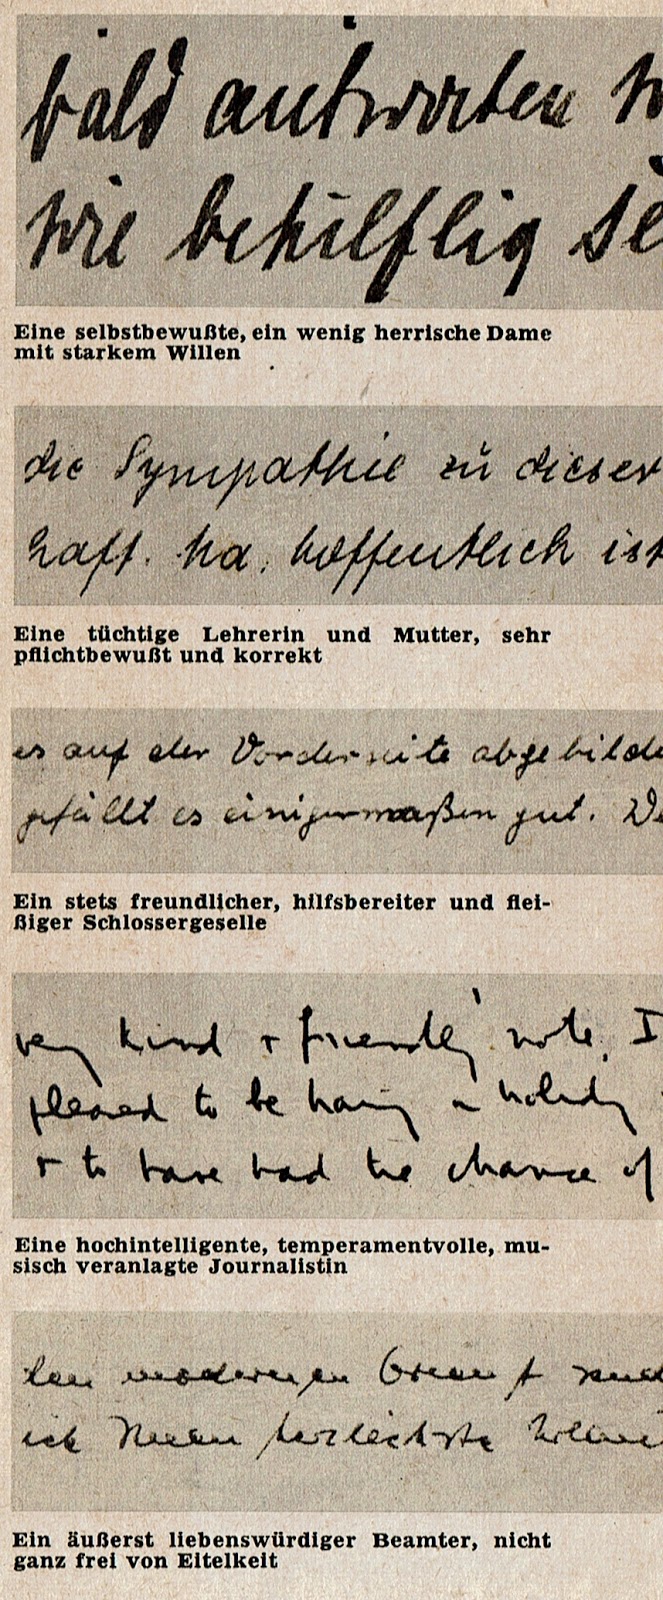 bald antworten
wie behilflig se
Eine selbstbewußte, ein wenig herrische Dame
mit starkem Willen
die Sympathie zu dieser
haft. Na, hoffentlich ist
Eine tüchtige Lehrerin und Mutter, sehr
pflichtbewußt und korrekt
es auf der Vorderseite abgebilde
gefällt es einigermaßen gut. We
Ein stets freundlicher, hilfsbereiter und flei-
ßiger Schlossergeselle
very kind + friendly note. I
pleased to be having a holiday
+ to have had the chance of
Eine hochintelligente, temperamentvolle, mu-
sisch veranlagte Journalistin
den modernen und
ich Ihnen herzlichste
Ein äußerst liebenswürdiger Beamter, nicht
ganz frei von Eitelkeit